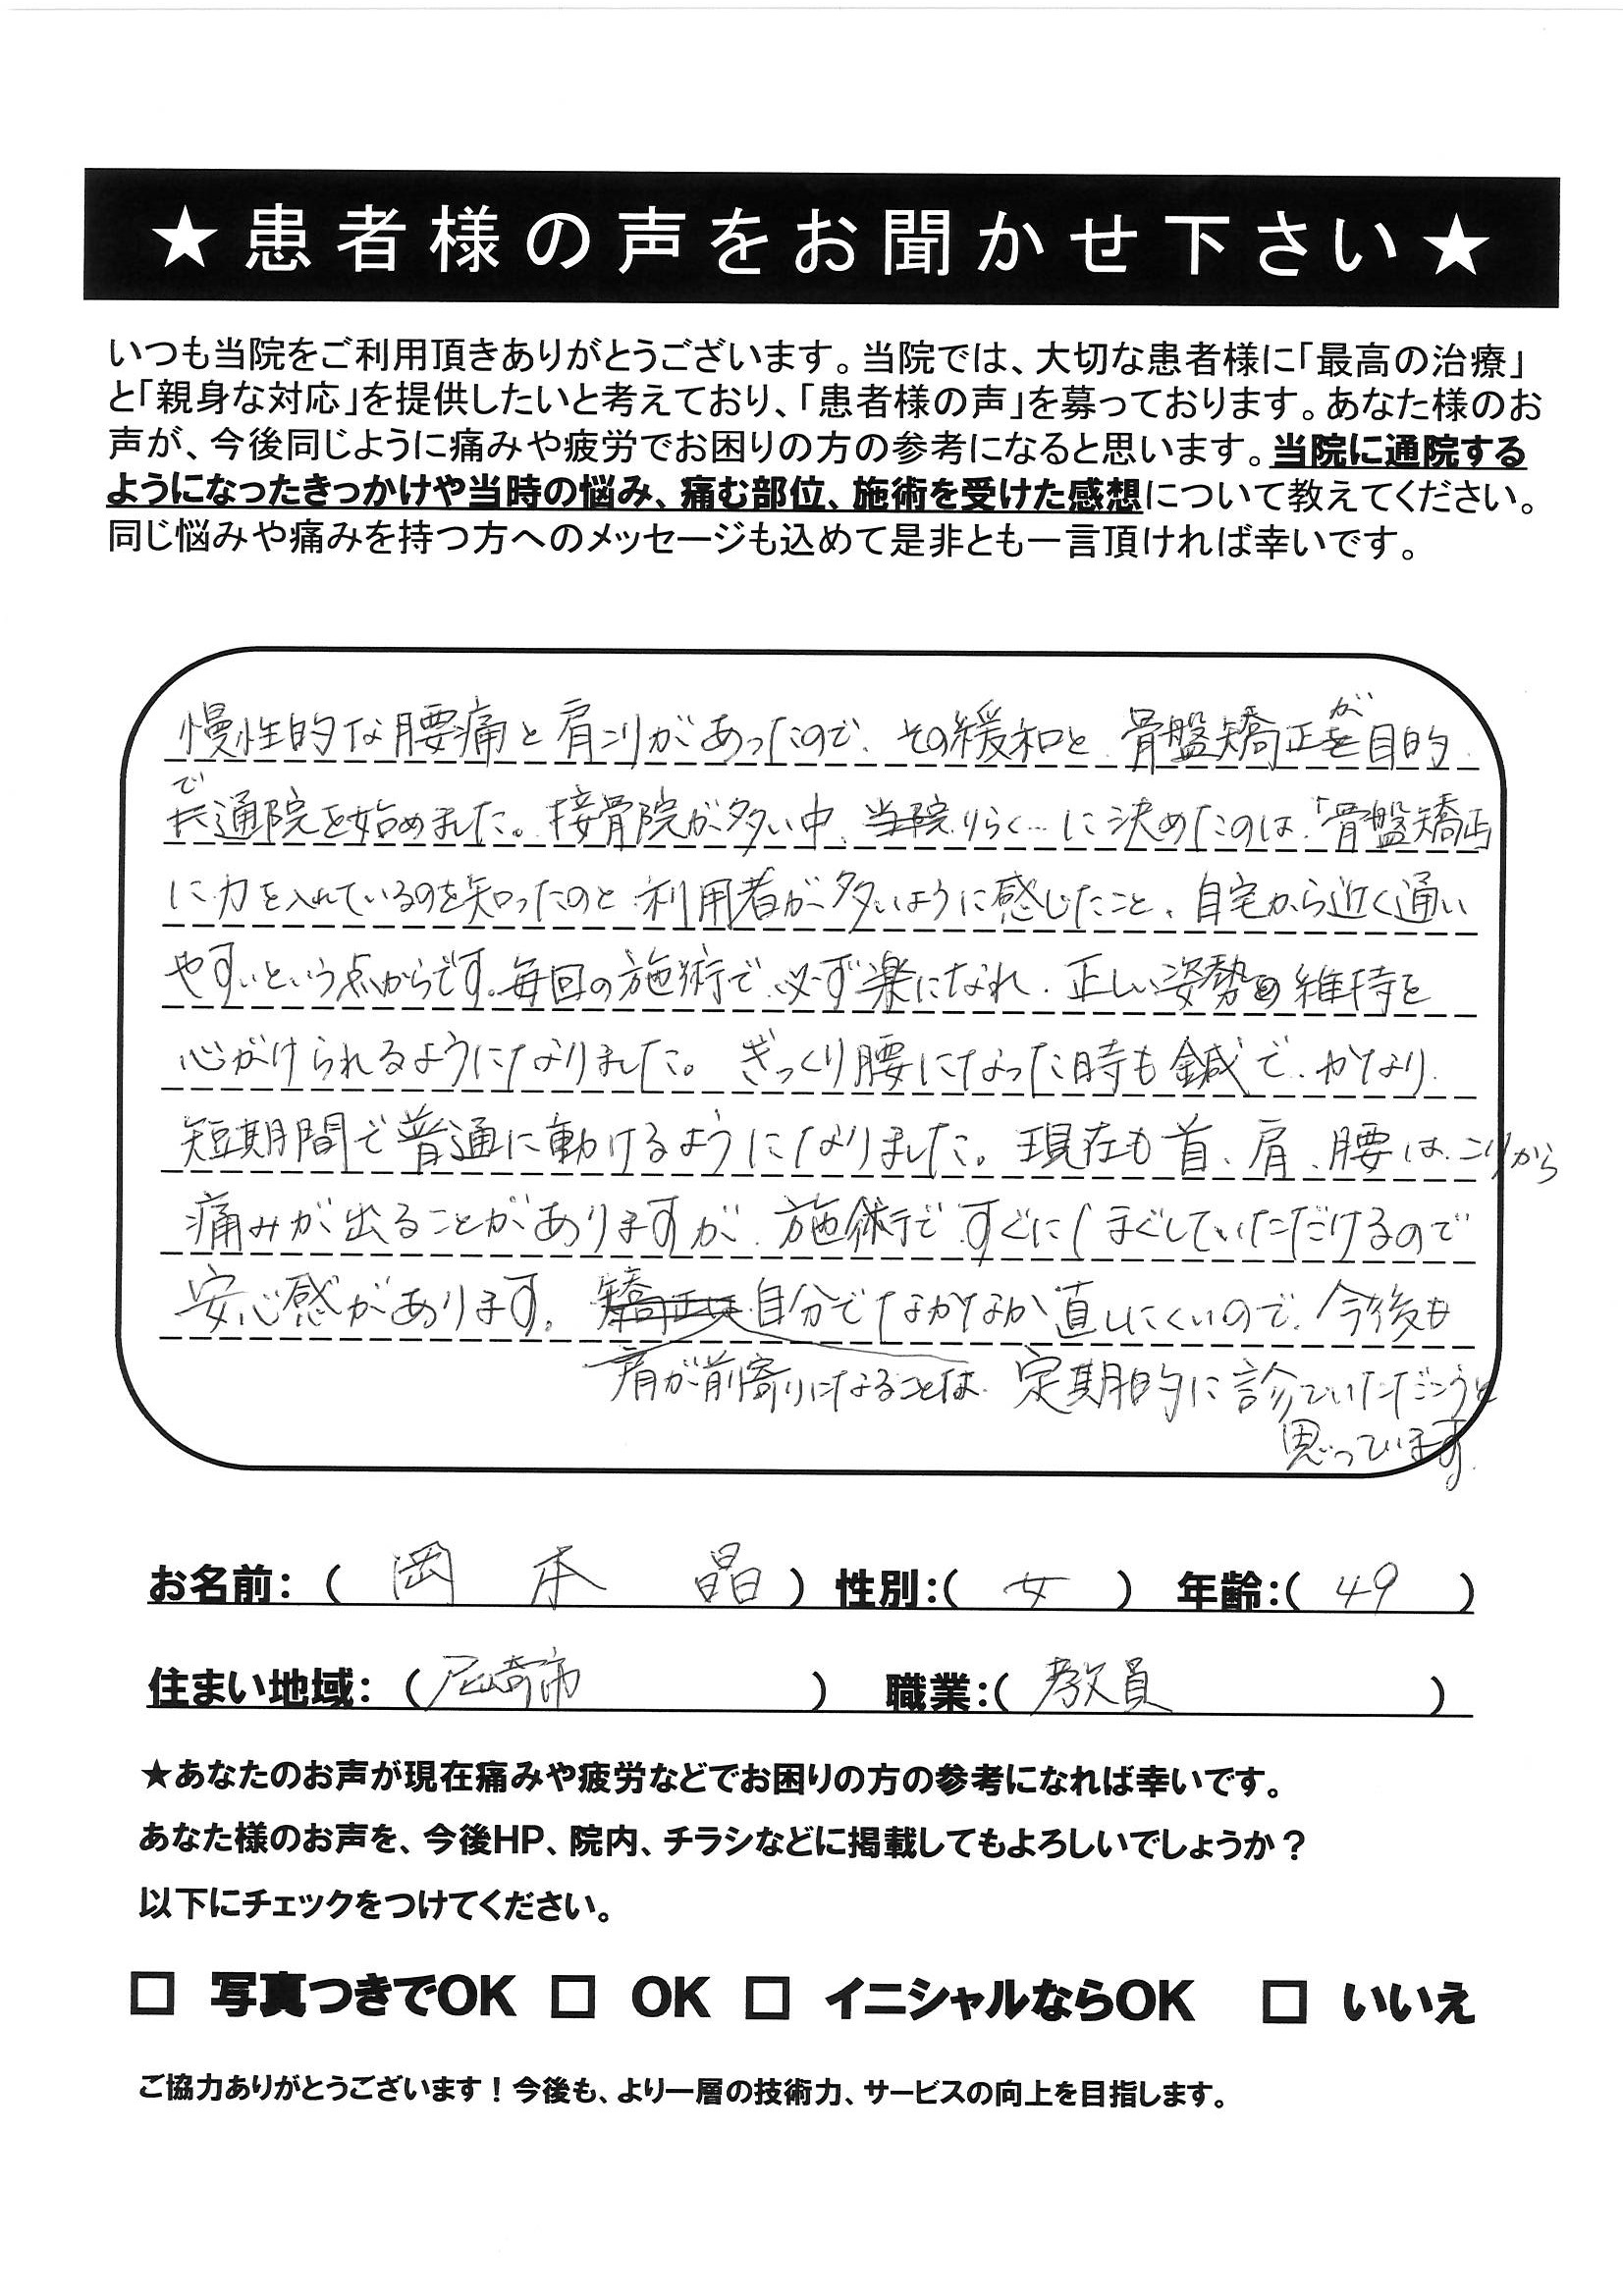 ★患者様の声をお聞かせ下さい★
いつも当院をご利用頂きありがとうございます。当院では、大切な患者様に「最高の治療」
と「親身な対応」を提供したいと考えており、「患者様の声」を募っております。あなた様のお
声が、今後同じように痛みや疲労でお困りの方の参考になると思います。当院に通院する
ようになったきっかけや当時の悩み、痛む部位、施術を受けた感想について教えてください。
同じ悩みや痛みを持つ方へのメッセージも込めて是非とも一言頂ければ幸いです。
慢性的な腰痛と肩コリがあったので、その緩和と、骨盤矯正が目的
で通院を始めました。接骨院が多い中、りらく…に決めたのは、「骨盤矯正
に力を入れているのを知ったのと、利用者が多いように感じたこと、自宅から近く通い
やすいという点からです。毎回の施術で必ず楽になれ、正しい姿勢の維持を
心がけられるようになりました。ぎっくり腰になった時も鍼で、かなり
短期間で普通に動けるようになりました。現在も首、肩、腰は、こりから
痛みが出ることがありますが、施術ですぐにほぐしていただけるので
安心感があります。自分でなかなか直しにくいので、今後も
肩が前寄りになることは、定期的に診ていただこうと
思っています。
お名前：（ 岡本 晶 ）性別：（ 女 ）年齢：（ 49 ）
住まい地域：（ 尼崎市 ）職業：（ 教員 ）
★あなたのお声が現在痛みや疲労などでお困りの方の参考になれば幸いです。
あなた様のお声を、今後HP、院内、チラシなどに掲載してもよろしいでしょうか？
以下にチェックをつけてください。
□ 写真つきでOK □ OK □ イニシャルならOK □ いいえ
ご協力ありがとうございます！今後も、より一層の技術力、サービスの向上を目指します。